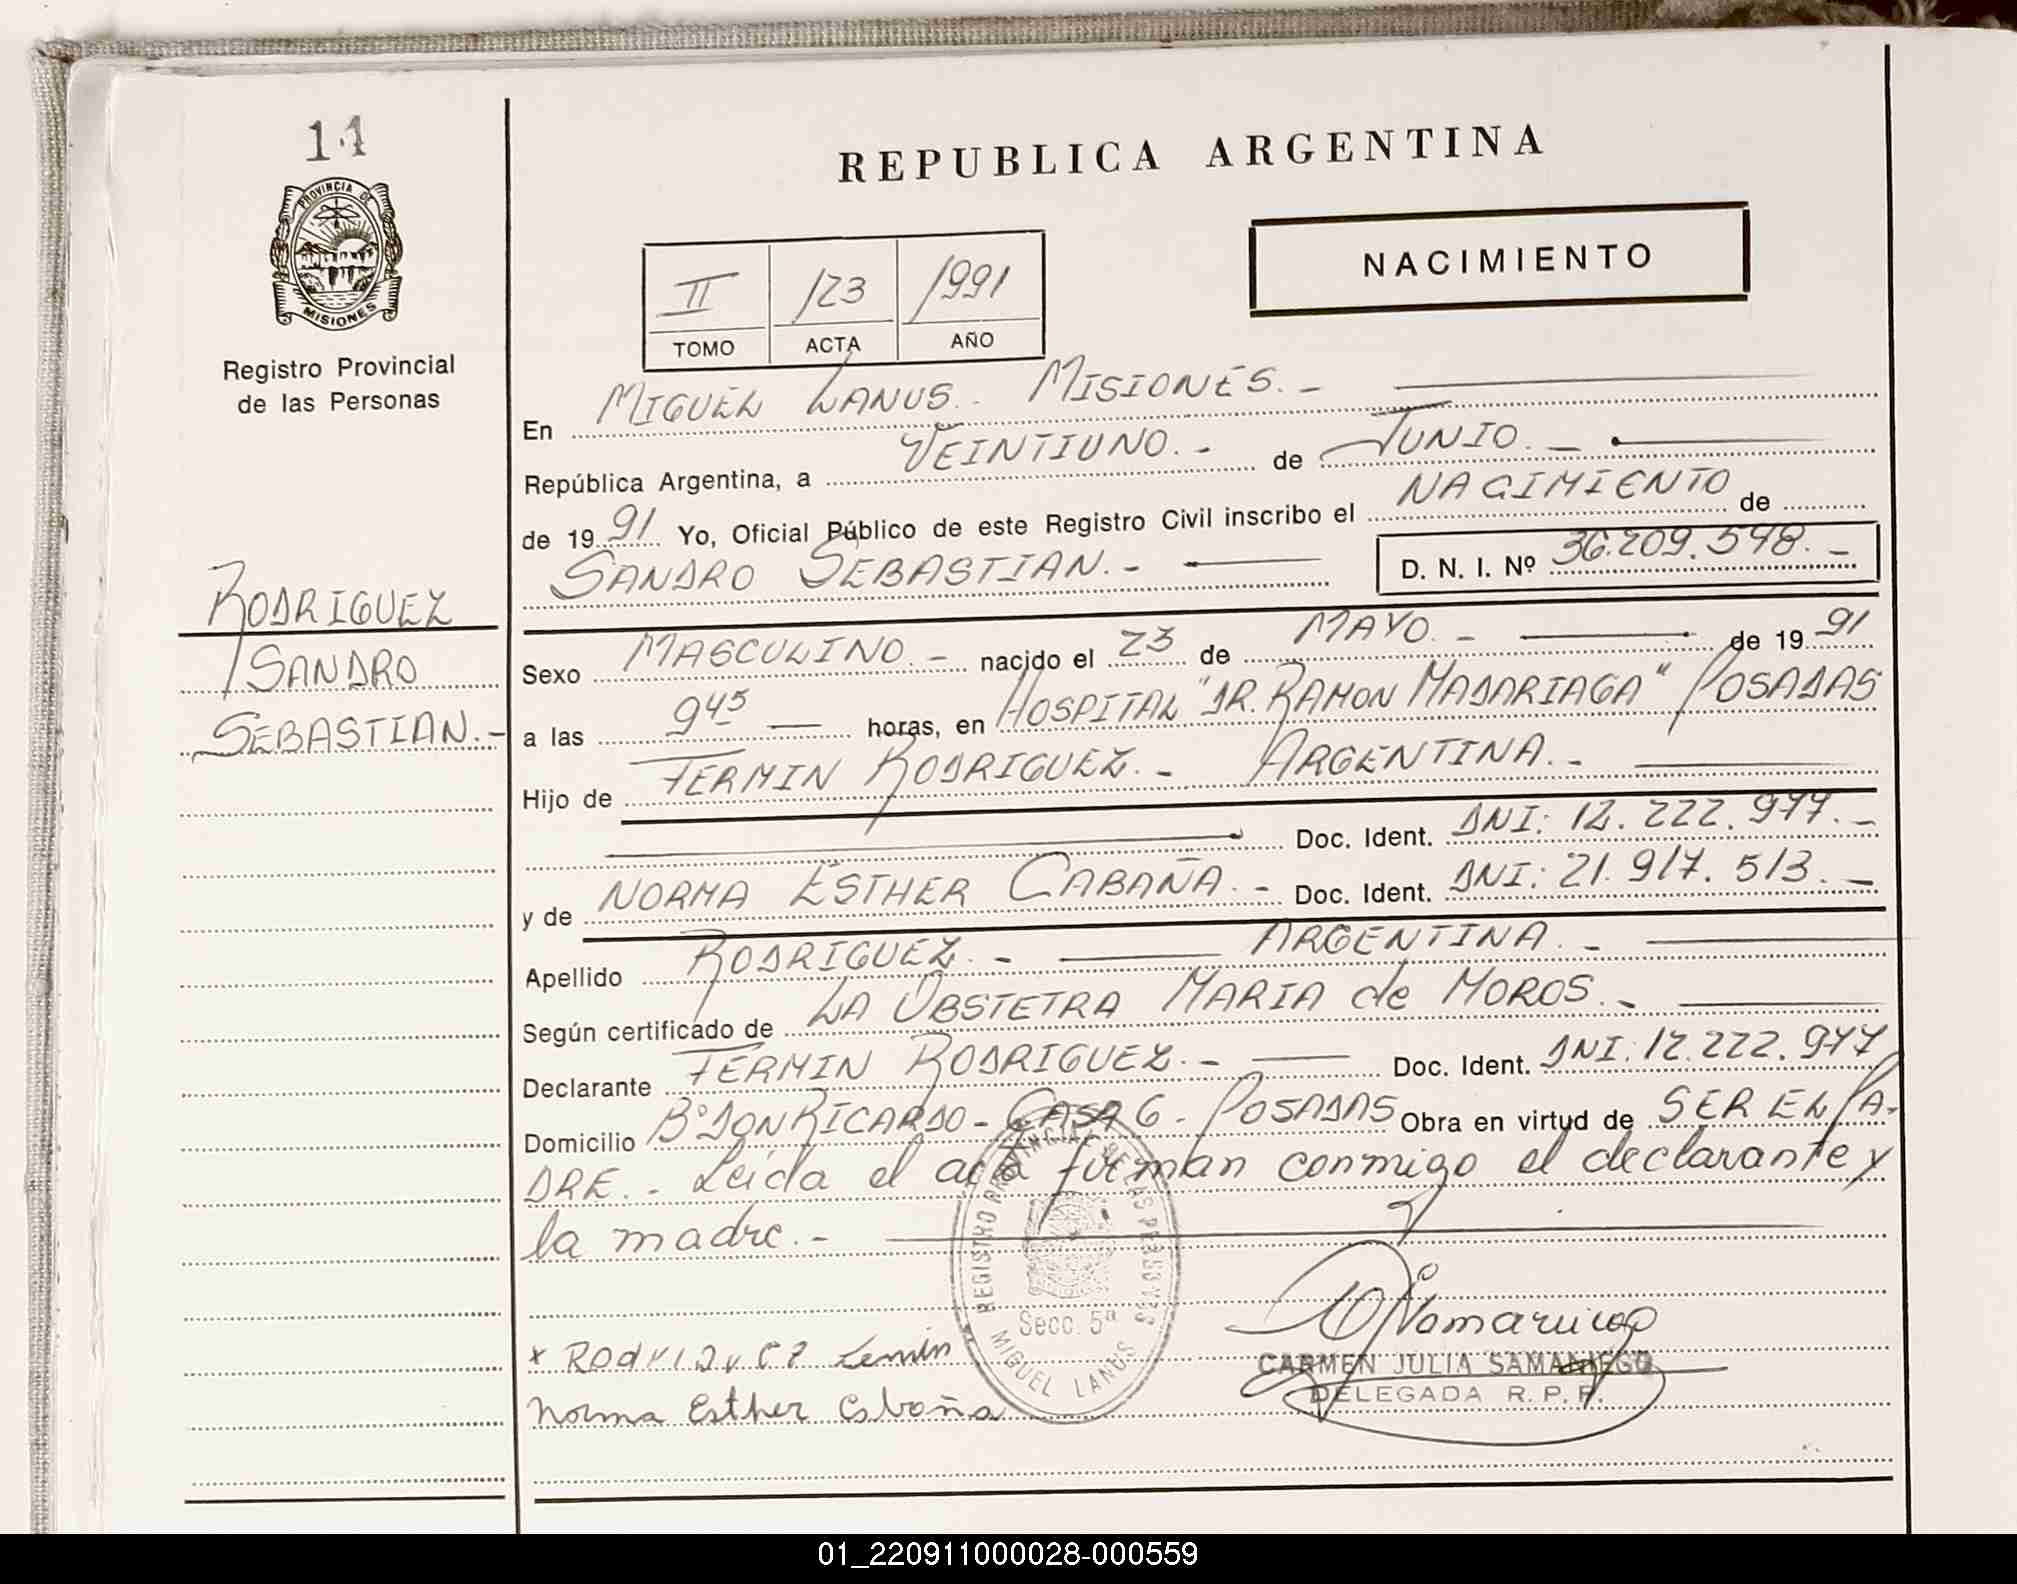 14
PROVINCIA DE
MISIONES
Registro Provincial
de las Personas
RODRIGUEZ
SANDRO
SEBASTIAN.-
REPUBLICA ARGENTINA
NACIMIENTO
II 123 1991
TOMO ACTA AÑO
En MIGUEL LANUS.. MISIONES.-
República Argentina, a VEINTIUNO.- de JUNIO.-
de 1991 Yo, Oficial Público de este Registro Civil inscribo el NACIMIENTO de
SANDRO SEBASTIAN.- D. N. I. Nº 36.209.548.-
Sexo MASCULINO.- nacido el 23 de MAYO.- de 1991
a las 9 45 — horas, en HOSPITAL "DR. RAMON MADARIAGA" POSADAS
Hijo de FERMIN RODRIGUEZ.- ARGENTINA.-
Doc. Ident. DNI: 12.222.977.-
y de NORMA ESTHER CABAÑA.- Doc. Ident. DNI: 21.917.513.-
Apellido RODRIGUEZ.- ARGENTINA.-
Según certificado de LA OBSTETRA MARIA de MOROS.-
Declarante FERMIN RODRIGUEZ.- Doc. Ident. DNI: 12.222.977
Domicilio Bº DON RICARDO - CASA 6 - POSADAS Obra en virtud de SER EL PA-
DRE.- Leida el acta firman conmigo el declarante y
la madre.-
REGISTRO PROVINCIAL DE LAS PERSONAS
Secc. 5ª
MIGUEL LANUS
x Rodriguez Fermin
Norma Esther Cabaña
CARMEN JULIA SAMANIEGO
DELEGADA R. P. P.
01_220911000028-000559